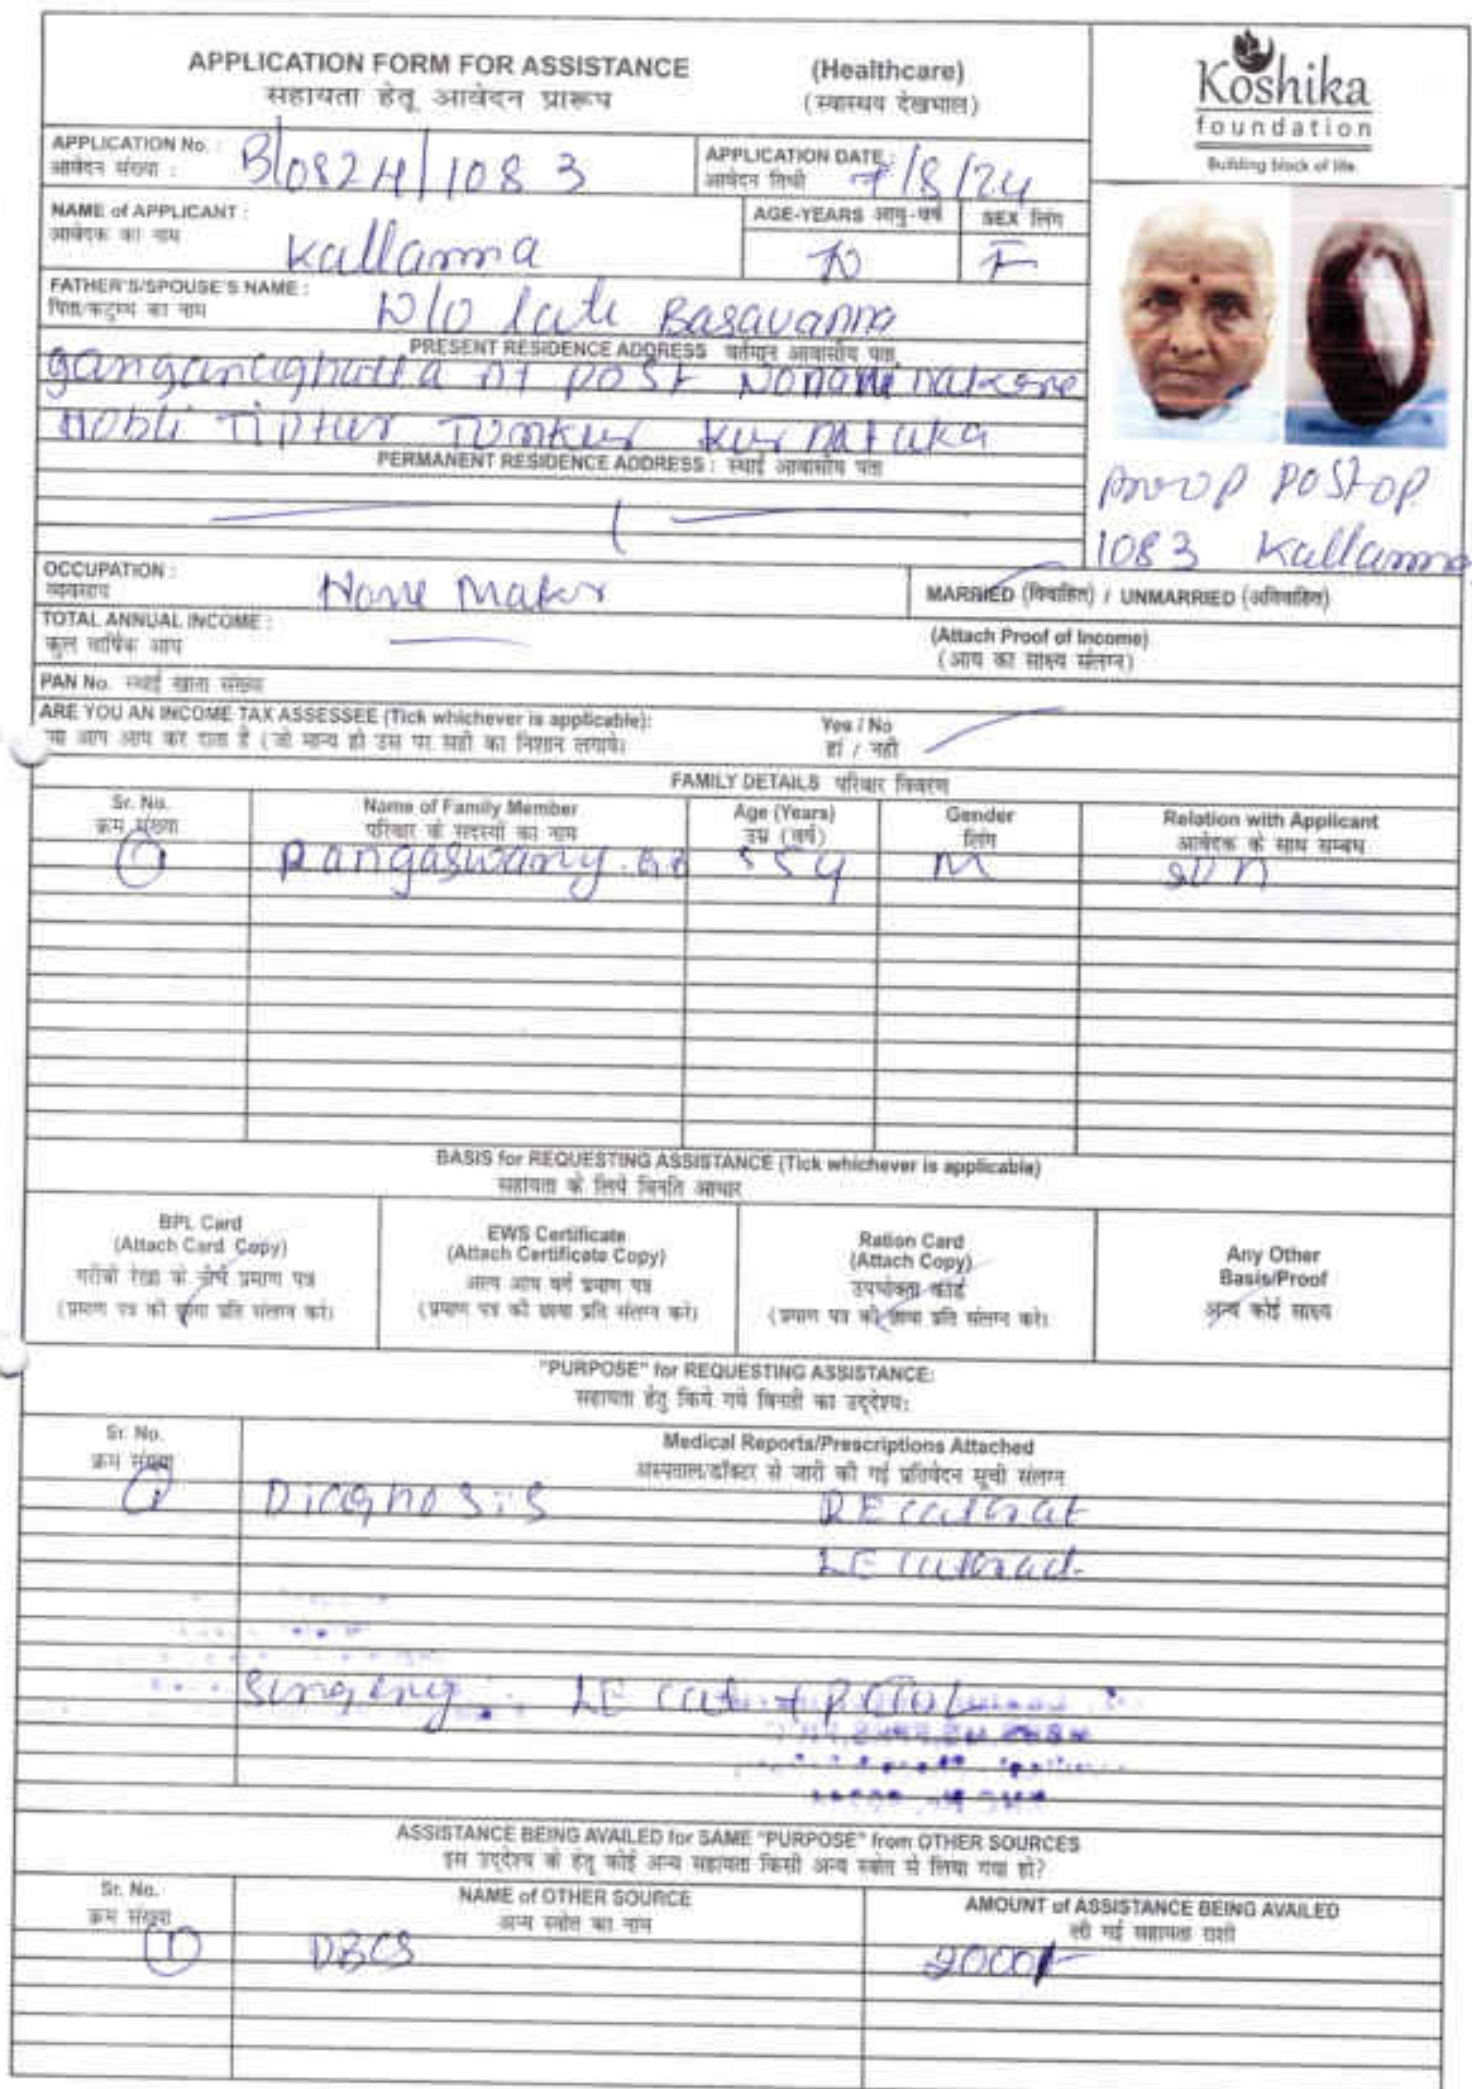 APPLICATION FORM FOR ASSISTANCE (Healthcare)
सहायता हेतू आवेदन प्रारूप (स्वास्थय देखभाल)
Koshika
foundation
Building block of life.
APPLICATION No. : B/0824/1083
आवेदन संख्या :
APPLICATION DATE : 7/8/24
आवेदन तिथी
NAME of APPLICANT :
आवेदक का नाम
Kallamma
AGE-YEARS आयु-वर्ष
SEX लिंग
F
FATHER'S/SPOUSE'S NAME : W/O late Basavanna
PRESENT RESIDENCE ADDRESS वर्तमान आवासीय पता
at post
Hobli Tiptur Tumkur Karnataka
PERMANENT RESIDENCE ADDRESS : स्थाई आवासीय पता
Postop
1083 Kallamma
OCCUPATION : Home Maker
व्यवसाय
MARRIED (विवाहित) / UNMARRIED (अविवाहित)
TOTAL ANNUAL INCOME :
कुल वार्षिक आय
(Attach Proof of Income)
(आय का साक्ष्य संलग्न)
PAN No. स्थाई खाता संख्या
ARE YOU AN INCOME TAX ASSESSEE (Tick whichever is applicable): Yes / No
आप आय कर दाता है (जो मान्य हो उस पर सही का निशान लगाये। हां / नही
FAMILY DETAILS परिवार विवरण
Sr. No. Name of Family Member Age (Years) Gender Relation with Applicant
क्रम संख्या परिवार के सदस्यों का नाम उम्र (वर्ष) लिंग आवेदक के साथ सम्बध
1 Rangaswamy M son
BASIS for REQUESTING ASSISTANCE (Tick whichever is applicable)
सहायता के लिये विनति आधार
BPL Card
(Attach Card Copy)
गरीबी रेखा के नीचे प्रमाण पत्र
(प्रमाण पत्र की छाया प्रति संलग्न करे)
EWS Certificate
(Attach Certificate Copy)
अल्प आय वर्ग प्रमाण पत्र
(प्रमाण पत्र की छाया प्रति संलग्न करे)
Ration Card
(Attach Copy)
उपभोक्ता कार्ड
(प्रमाण पत्र की छाया प्रति संलग्न करे)
Any Other
Basis/Proof
अन्य कोई साक्ष्य
"PURPOSE" for REQUESTING ASSISTANCE:
सहायता हेतु किये गये विनती का उद्देश्य:
Sr. No. Medical Reports/Prescriptions Attached
क्रम संख्या अस्पताल/डॉक्टर से जारी की गई प्रतिवेदन सूची संलग्न
1 Diagnosis RE
LE
LE
ASSISTANCE BEING AVAILED for SAME "PURPOSE" from OTHER SOURCES
इस उद्देश्य के हेतु कोई अन्य सहायता किसी अन्य स्त्रोत से लिया गया हो?
Sr. No. NAME of OTHER SOURCE AMOUNT of ASSISTANCE BEING AVAILED
क्रम संख्या अन्य स्त्रोत का नाम ली गई सहायता राशी
1 DBCS 2000/-